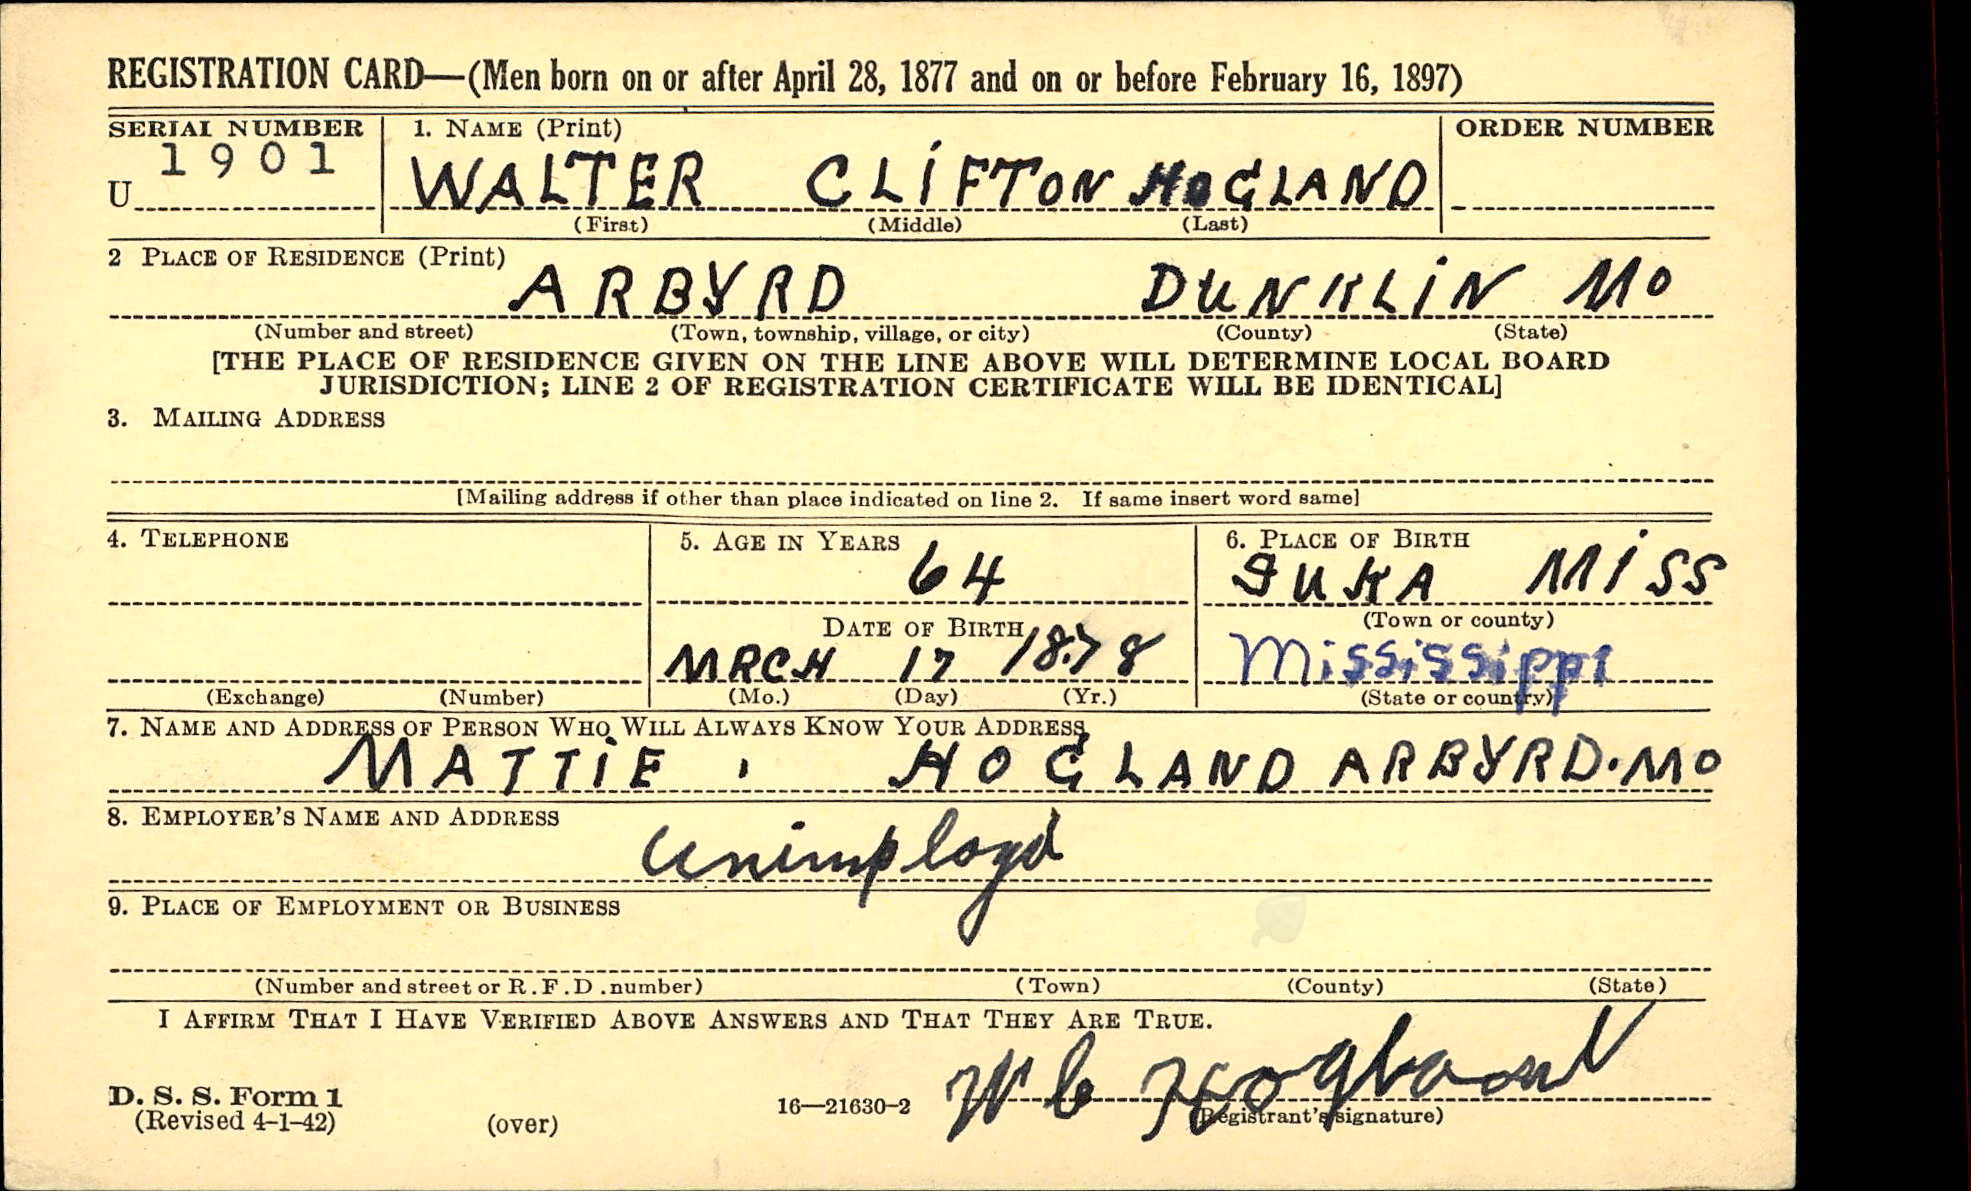 REGISTRATION CARD—(Men born on or after April 28, 1877 and on or before February 16, 1897)
SERIAL NUMBER 1. NAME (Print) ORDER NUMBER
U 1901 WALTER CLIFTON HOGLAND
(First) (Middle) (Last)
2 PLACE OF RESIDENCE (Print)
ARBYRD DUNKLIN MO
(Number and street) (Town, township, village, or city) (County) (State)
[THE PLACE OF RESIDENCE GIVEN ON THE LINE ABOVE WILL DETERMINE LOCAL BOARD
JURISDICTION; LINE 2 OF REGISTRATION CERTIFICATE WILL BE IDENTICAL]
3. MAILING ADDRESS
[Mailing address if other than place indicated on line 2. If same insert word same]
4. TELEPHONE 5. AGE IN YEARS 6. PLACE OF BIRTH
64 IUKA MISS
DATE OF BIRTH (Town or county)
MRCH 17 1878 Mississippi
(Exchange) (Number) (Mo.) (Day) (Yr.) (State or country)
7. NAME AND ADDRESS OF PERSON WHO WILL ALWAYS KNOW YOUR ADDRESS
MATTIE . HOGLAND ARBYRD. MO
8. EMPLOYER'S NAME AND ADDRESS
Unimployd
9. PLACE OF EMPLOYMENT OR BUSINESS
(Number and street or R.F.D. number) (Town) (County) (State)
I AFFIRM THAT I HAVE VERIFIED ABOVE ANSWERS AND THAT THEY ARE TRUE.
W C Hogland
D. S. S. Form 1
(Revised 4-1-42) (over) 16—21630-2 (Registrant's signature)